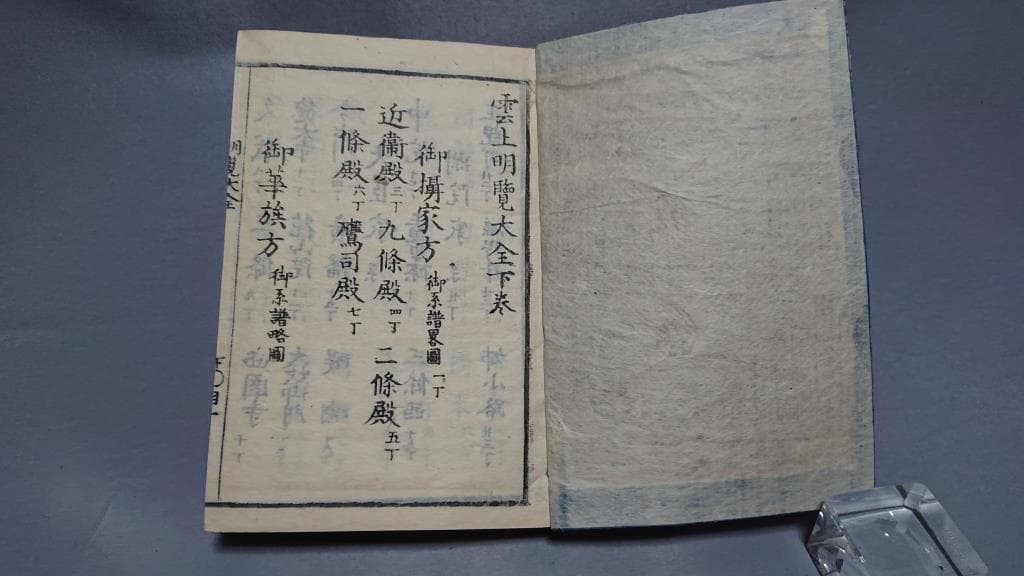 雲上明覽大全下巻
御攝家方 御系譜畧圖 一丁
近衞殿 三丁 九條殿 四丁 二條殿 五丁
一條殿 六丁 鷹司殿 七丁
御華族方 御系譜略圖
明覽大全